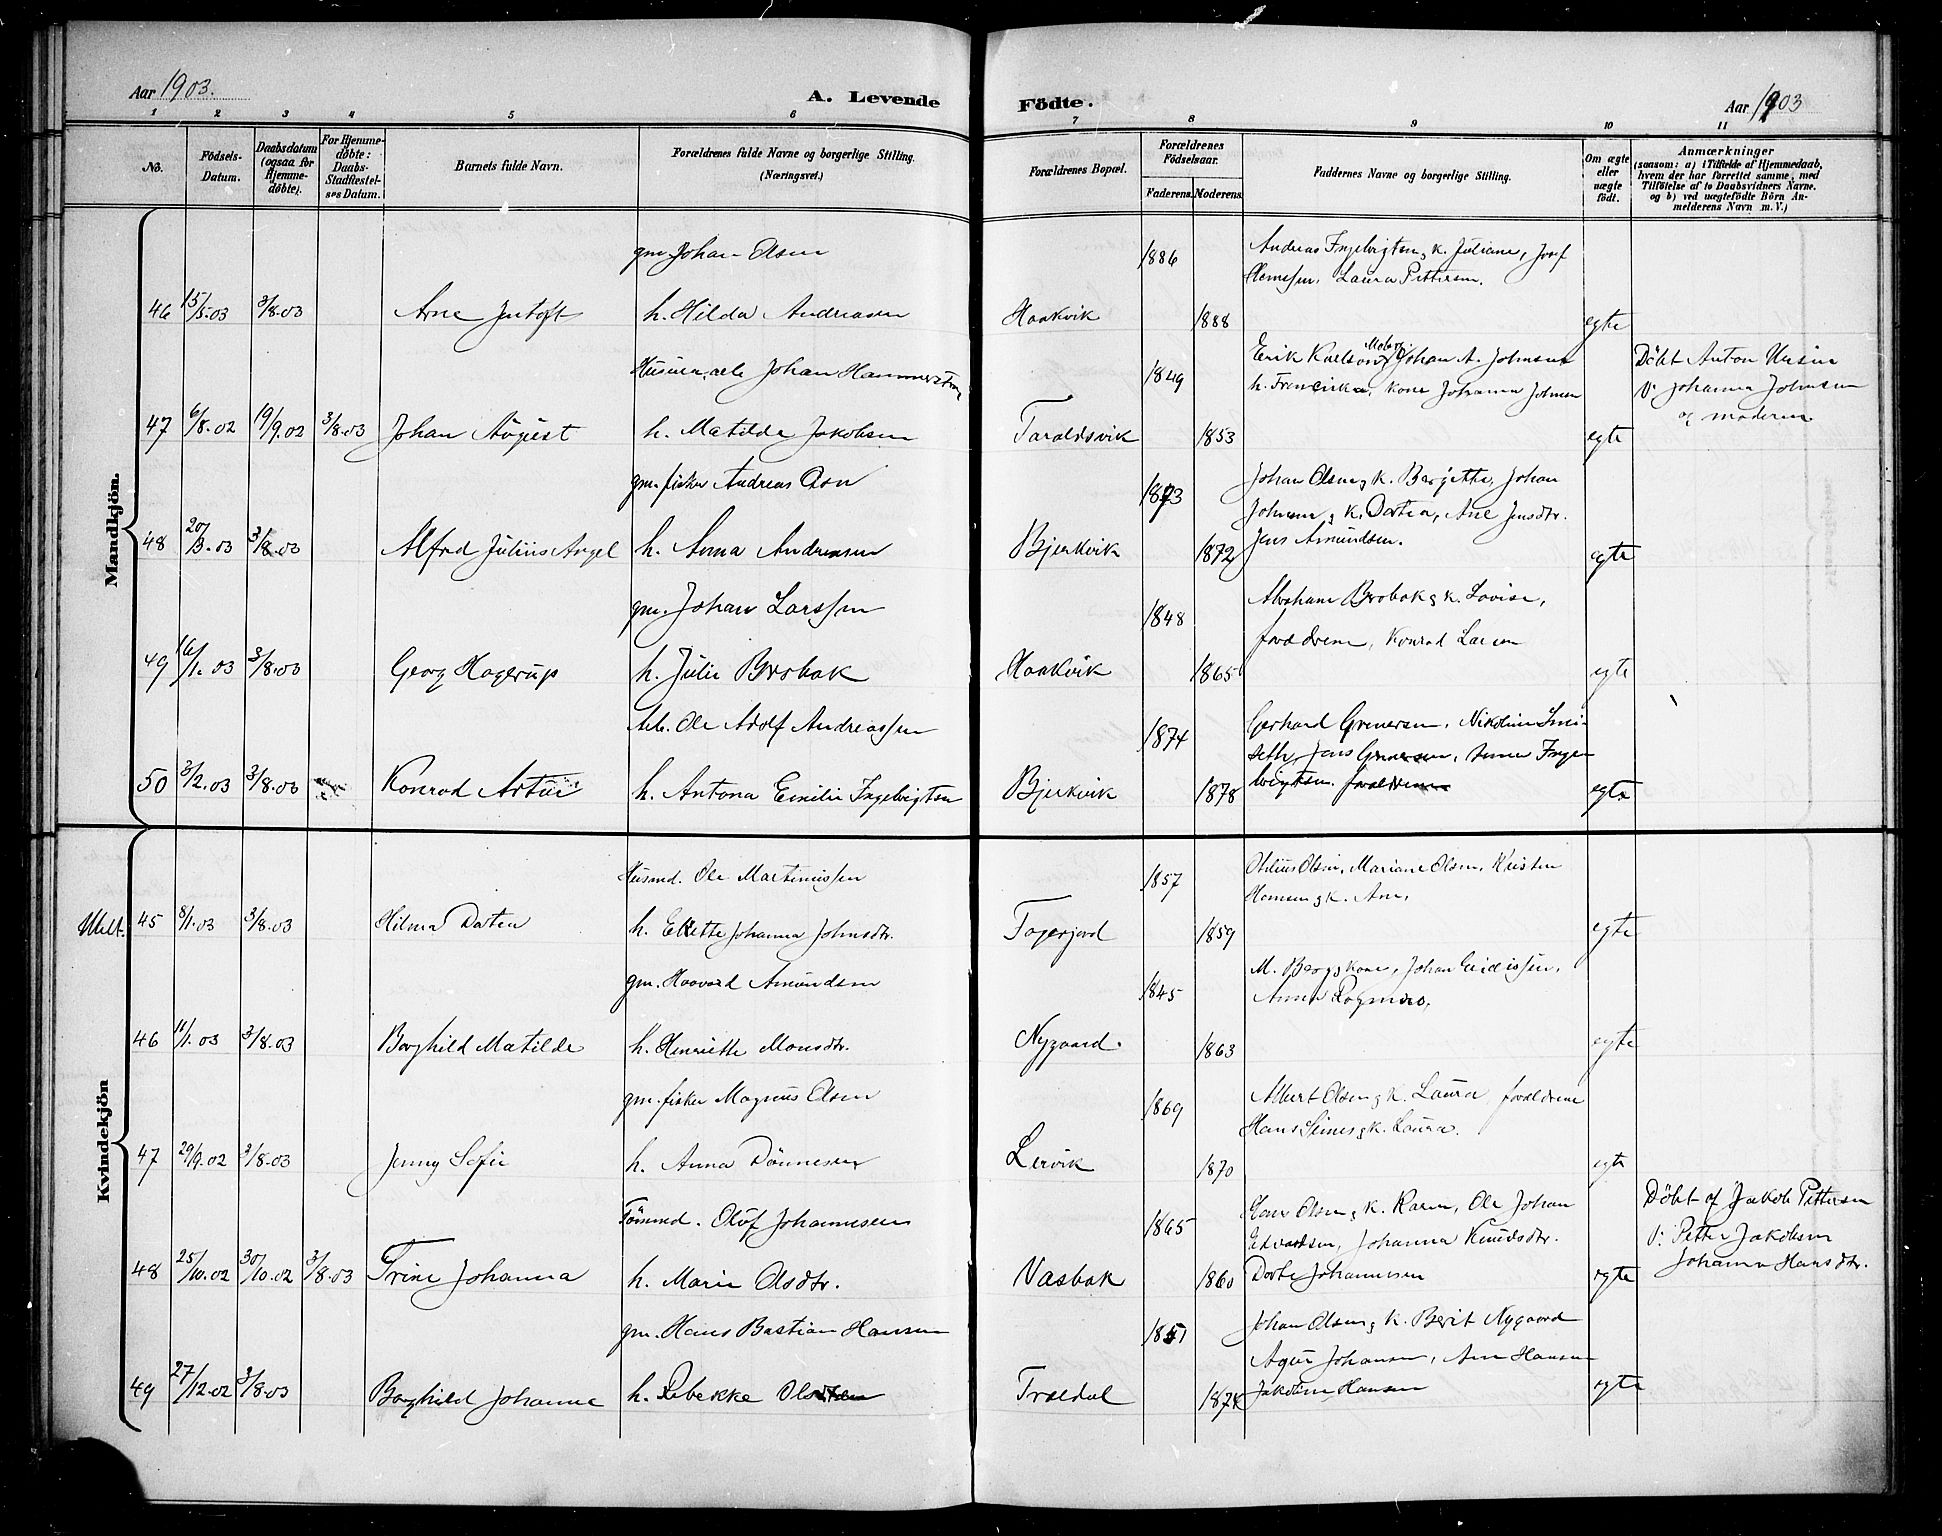 Aar 1903.
A. Levende
Födte.
Aar 1903
1 2 3 4 5 6 7 8 9 10 11
No.
Födsels-Datum.
Daabsdatum (ogsaa for Hjemmedøbte).
For Hjemmedøbte: Daabs-Stadfæstelses Datum.
Barnets fulde Navn.
Forældrenes fulde Navne og borgerlige Stilling. (Næringsvei.)
Forældrenes Bopæl.
Forældrenes Födselsaar.
Faderens. Moderens.
Faddernes Navne og borgerlige Stilling.
Om ægte eller uægte født.
Anmærkninger
(saasom: a) i Tilfælde af Hjemmedaab,
hvem der har forrettet samme, med
Tilføielse af to Daabsvidners Navne.
og b) ved uægtefödte Börn An-
melderens Navn m. V.)
Mandkjön.
gm. Johan Olsen 1886 Andreas Ingebrigtsen, k. Juliane, Josef
Laura Pettersen.
46 15/5.03 3/8.03 Arne h. Hilda Andreasen Haakvik 1888 egte
Johan Hammerstrøm 1849 Erik Karlson Johan A. Johnsen
h. kone Johanna Johnsen
Døbt Anton
V: Johanna Johnsen
og moderen
47 6/8.02 19/9.02 3/8.03 Johan August h. Matilde Jakobsen Taraldsvik 1853 egte
gm. fisker Andreas Osn 1873 Johan Olsen & k. Berjette, Johan
Johnsen & k. Dortea, Ane Jensdtr.
48 20/3.03 3/8.03 Alfred Julius Angel h. Anna Andreasen Bjerkvik 1872 Jens Amundsen. egte
gm. Johan Larssen 1848 Abraham Brobak & k. Lovise,
forældrene, Konrad Larsen
49 16/1.03 3/8.03 Georg Hagerup h. Julie Brobak Haakvik 1865 egte
Arb. Ole Adolf Andreassen 1874 Gerhard Grenersen, Nikoline
seth, Jens Grenersen, Anna Inge
50 3/2.03 3/8.03 Konrad Artur h. Antona Emilie Ingebrigtsen Bjerkvik 1878 brigtsen. forældrene egte
Kvindekjön
Husmd. Ole Martinussen 1857 Otelius Olsen, Mariane Olsen, Kristen
Hansen & k. Ane,
45 8/1.03 3/8.03 Hilma Dortea h. Elette Johanna Johnsdtr. Fagerjord 1859 egte
gm. Haavard Amundsen 1845 M. Berg & kone, Johan
Anna
46 11/1.03 3/8.03 Borghild Matilde h. Henriette Monsdtr. Nygaard. 1863 egte
gm. fisker Magnus Olsen 1869 Albert Olsen & k. Laura, forældrene
Hans & k. Laura.
47 29/9.02 3/8.03 Jenny Sofie h. Anna Dönnesen Lervik 1870 egte
Tömmd. Oluf Johannesen 1865 Hans Olsen & k. Karen, Ole Johan
Edvardsen, Johanna Knudsdtr.
Døbt af Jakob Pettersen
V: Petter Jakobsen
Johanna Hansdtr.
48 25/10.02 30/10.02 3/8.03 Trine Johanna h. Marie Olsdtr. Vasbak 1860 Dorte Johannesen egte
gm. Hans Bastian Hansen 1851 Johan Olsen & k. Berit Nygaard
Johansen, Ane Hansen
49 27/12.02 3/8.03 Borghild Johanne h. Rebekke Trældal 1874 Jakobine Hansen egte